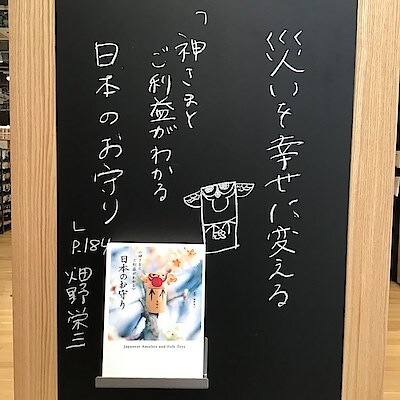 災いを幸せに変える
「神さまと
ご利益がわかる
日本のお守り
」P.184
畑野栄三
日本のお守り
Japanese Amulets and Folk Toys